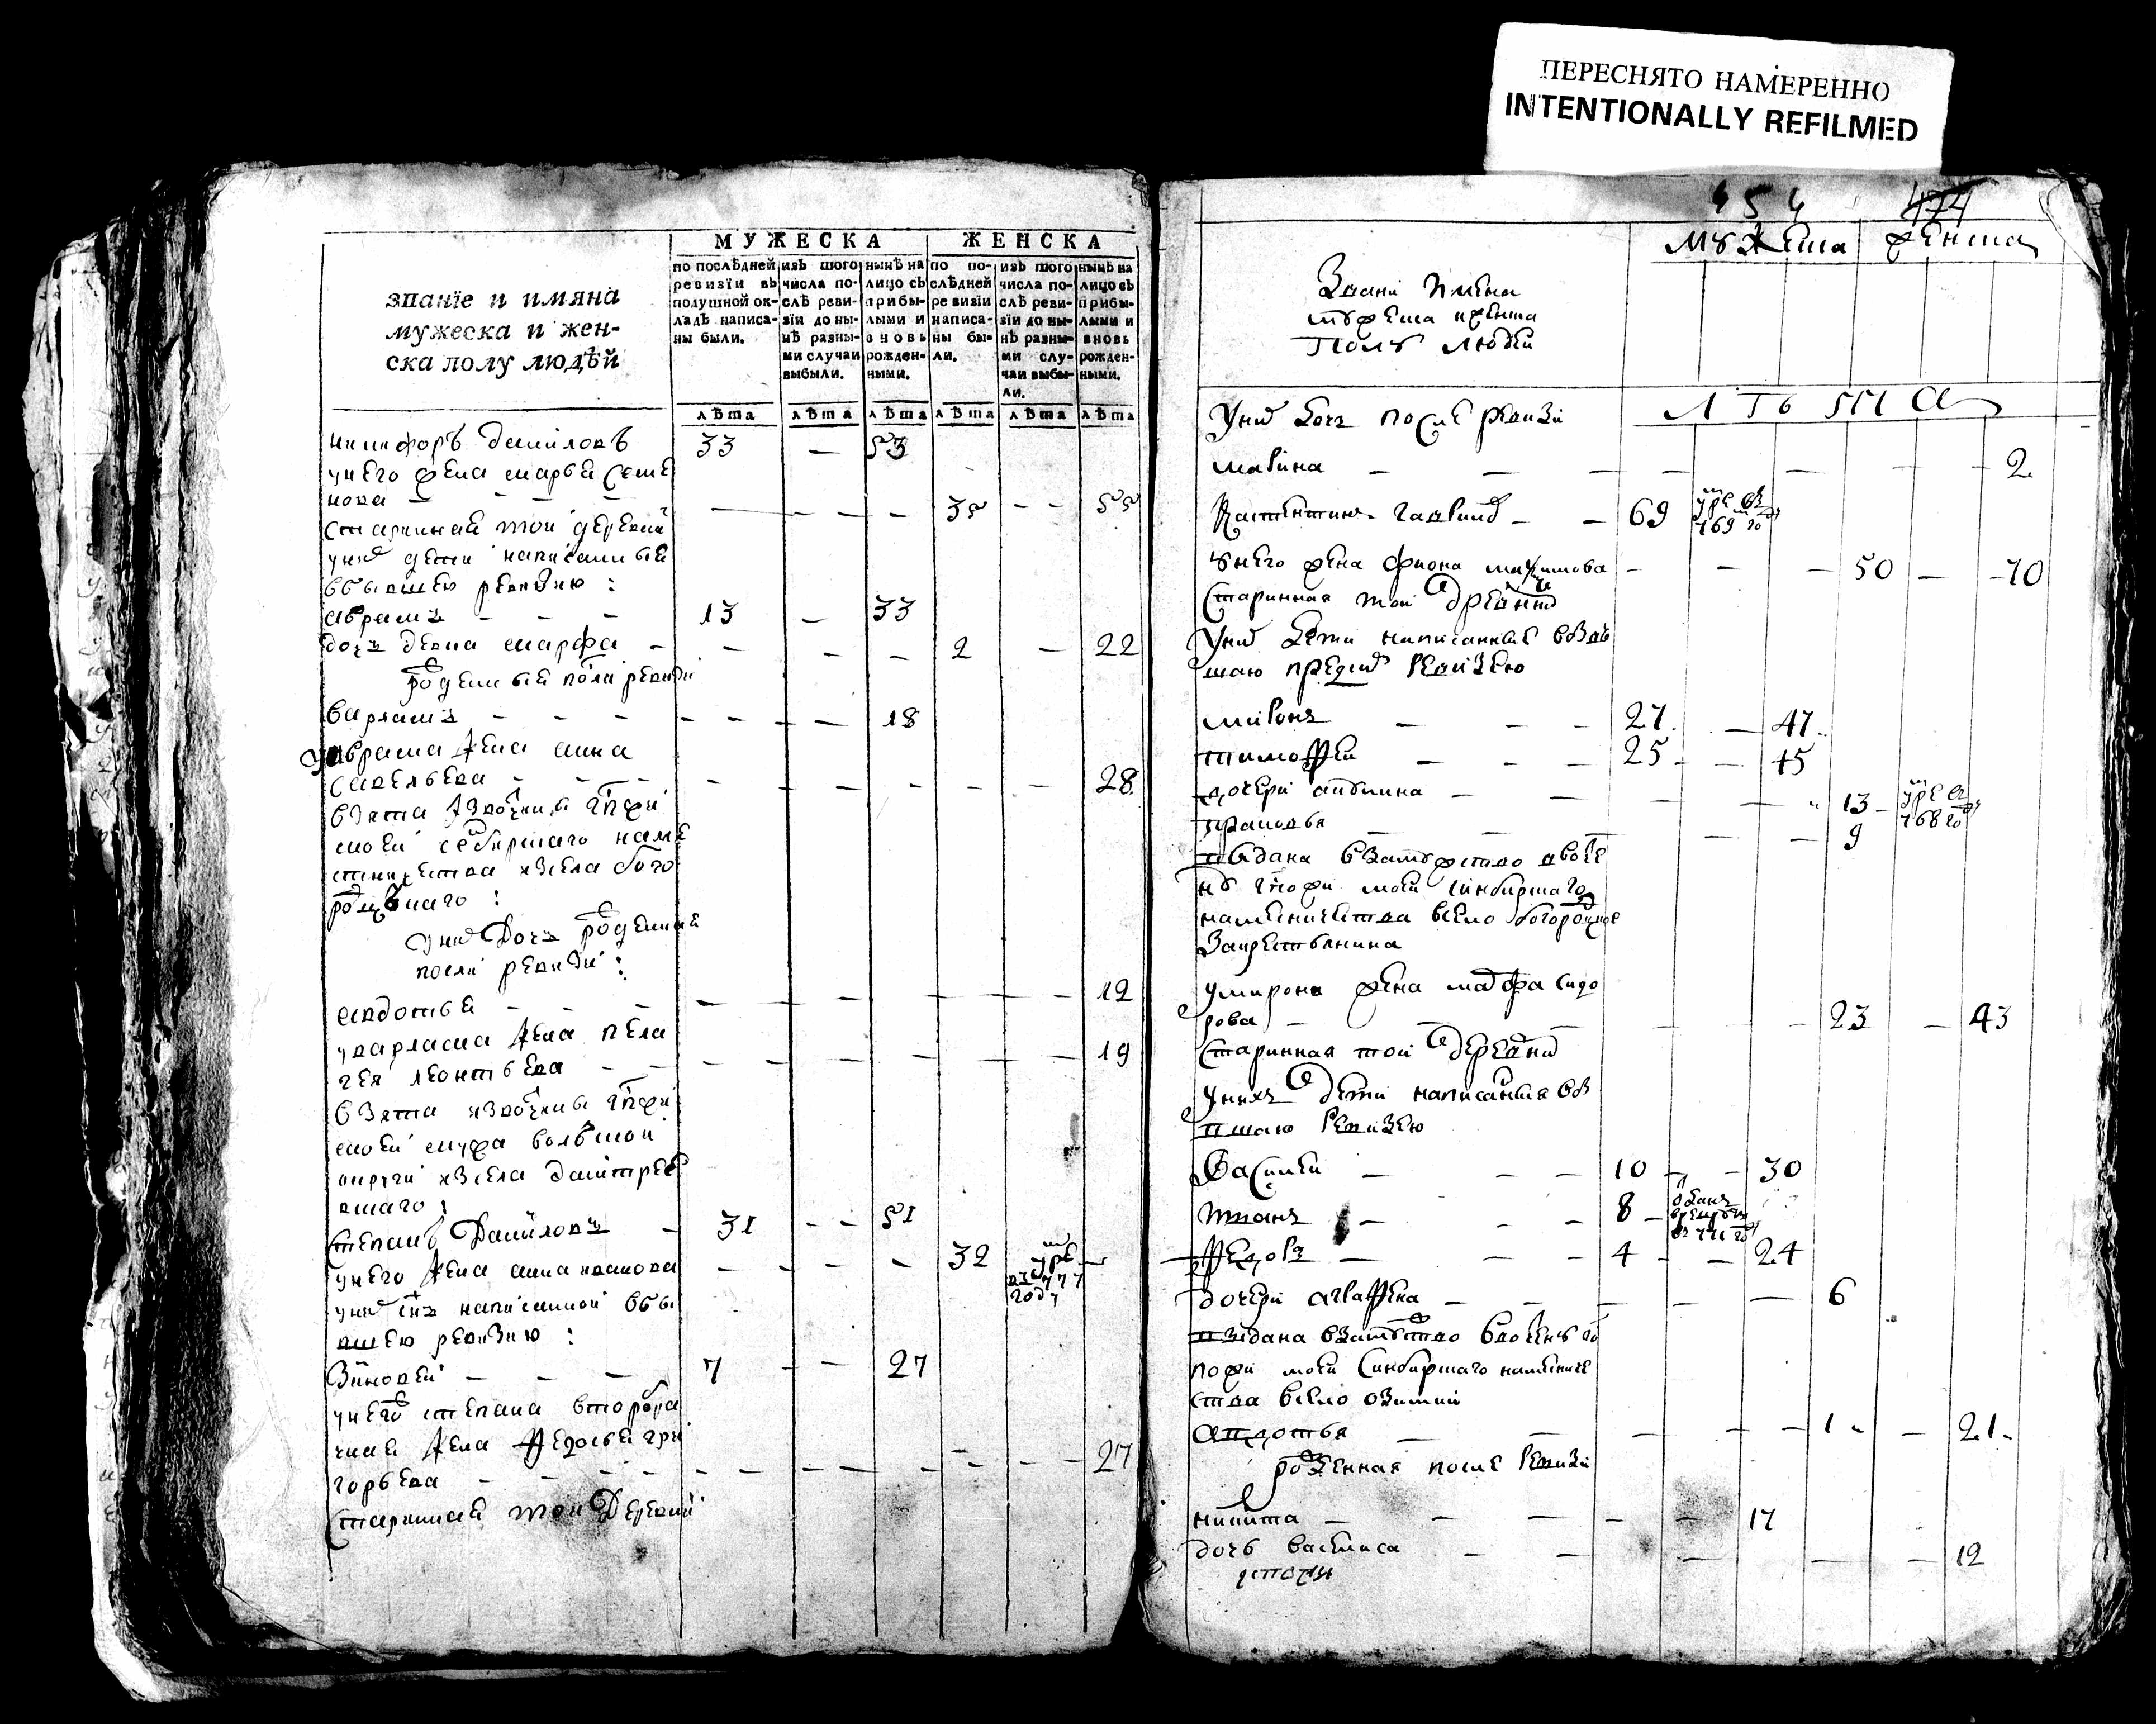 ПЕРЕСНЯТО НАМЕРЕННО
INTENTIONALLY REFILMED
454
474
МУЖЕСКА ЖЕНСКА
званїе и имяна
мужеска и жен-
ска полу людѣй
по послѣдней ревизїи въ подушной окладъ написаны были.
изъ того числа послѣ ревизїи до нынѣ разными случаи выбыли.
нынѣ на лицо съ прибылыми и вновь рожденными.
по послѣдней ревизїи написаны были.
изъ того числа послѣ ревизїи до нынѣ разными случаи выбыли.
нынѣ на лицо съ прибылыми и вновь рожденными.
лѣта лѣта лѣта лѣта лѣта лѣта
никифоръ даниловъ 33 — 53
у него жена марья семе
нова — 35 — 55
старинная той деревни
у них дети написанные
в бывшею ревизию :
абрамъ — 13 — 33
дочь девка марфа — 2 — 22
рожденные после ревизи
варламъ — 18
у абрама жена анна
савельева — 28
взята из вотчины гпжи
моей синбирскаго наме
стничества из села бого
родцкаго :
у них дочь рожденная
после ревизи :
авдотья — 12
у варлама жена пела
гея леонтьева — 19
взята из вотчины гпжи
моей
округи из села дмитрев
скаго :
степанъ даниловъ — 31 — 51
у него жена анна иванова — 32 умре
в 777
году
у них сын написанной в бы
вшею ревизию :
зиновей — 7 — 27
у него степана второбра
чная жена федосья гри
горьева — 27
старинная той деревни
мужеска женска
звани имена
мужеска и женска
полу людей
лѣта
у них дочь после ревизи
марина — 2
костентинъ гаврилов — 69 умре в
769 го
у него жена фиона максимова — 50 — 70
старинная той деревни
у них дети написанные в быв
шаю пред сим ревизею
миронъ — 27 — 47
тимофей — 25 — 45
дочери — 13 умре в
768 го
прасковья — 9
выдана в замужство в вотчи
ну гпожи моей синбирскаго
наместничества в село богородцкое
за крестьянина
у мирона жена марфа сидо
рова — 23 — 43
старинная той деревни
у них дети написанныя в бы
вшаю ревизею
василей — 10 — 30
иванъ — 8 отданъ
в рекруты
в 771 го
федоръ — 4 — 24
дочери аграфена — 6
выдана в замужство в вотчину го
спожи моей синбирскаго намесниче
ства в село озимки
авдотья — 1 — 21
рожденная после ревизи
никита — 17
дочь василиса — 12